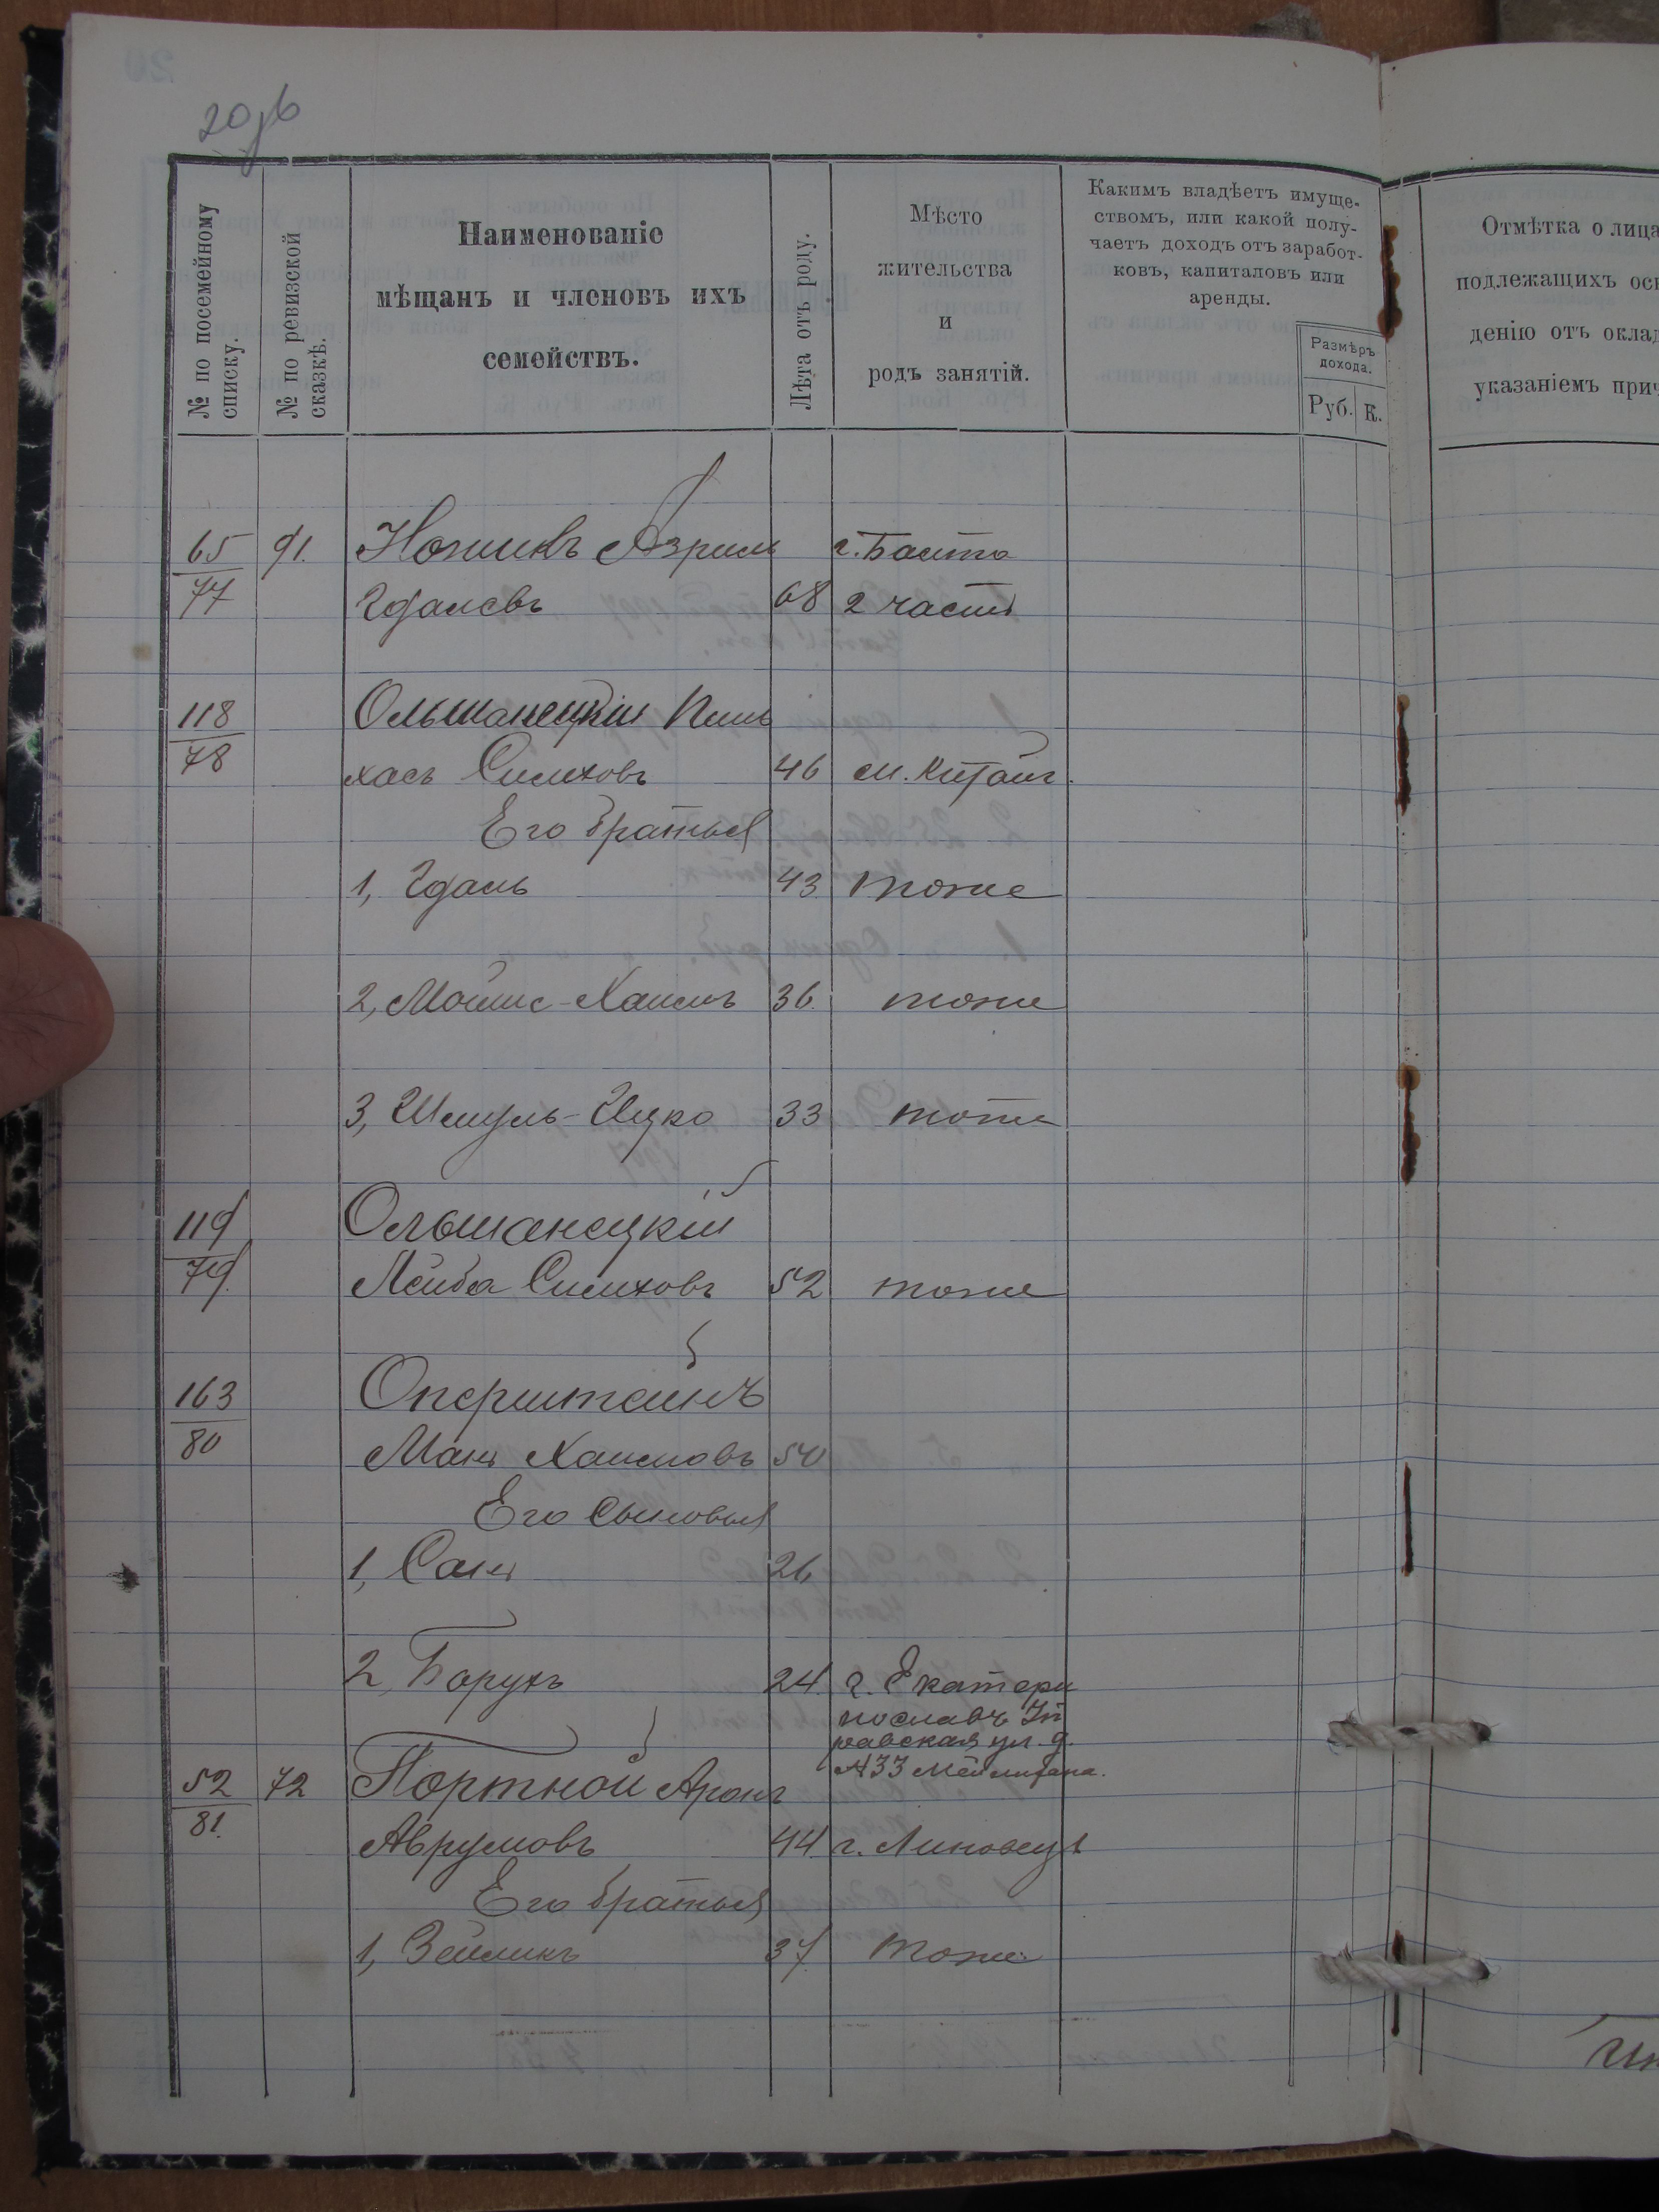 20об
№ по посемейному списку.
№ по ревизской сказкѣ.
Наименованіе
мѣщанъ и членовъ ихъ
семействъ.
Лѣта отъ роду.
Мѣсто
жительства
и
родъ занятій.
Какимъ владѣетъ имуще-
ствомъ, или какой полу-
чаетъ доходъ отъ заработ-
ковъ, капиталовъ или
аренды.
Размѣръ
дохода.
Руб. К.
Отмѣтка о лица
подлежащихъ осв
денію отъ оклад
указаніемъ прич
65 91. Ножикъ Азриль г. Балта
77 Гдалевъ 68 2 части
118 Ольшанецкій Пин
78 хасъ Симховъ 46 м. Китайг.
Его братья
1, Гдаль 43 тоже
2, Мошко-Хаимъ 36. тоже
3, Шмуль-Ицко 33 тоже
119 Ольшанецкій
79. Лейба Симховъ 52 тоже
163 Оперштейнъ
80 Маня Хаимовъ 50
Его сыновья
1, Саня 26
2, Борухъ 24. г. Екатери
нославъ
ул. д.
№33
52 72 Портной Аронъ
81. Аврумовъ 44 г. Липовецъ
Его братья
1, Зейликъ 37 тоже